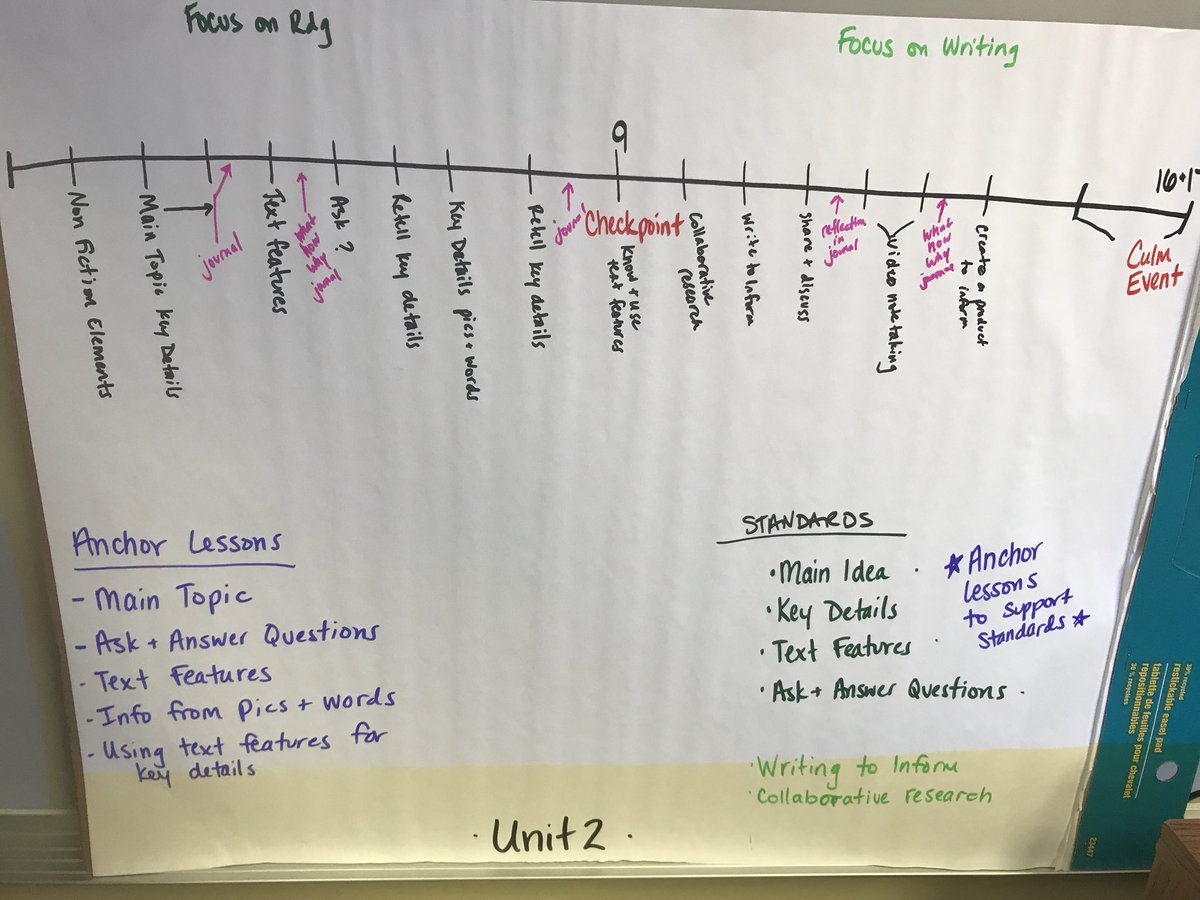 Focus on Rdg
Focus on Writing
9
16+17
Non Fiction Elements
Main Topic key Details
journal
Text features
journal
Ask ?
Retell key details
Key Details pics + words
Retell key details
journal
Checkpoint
know + use
text features
collaborative
research
write to Inform
share + discuss
reflection
in
journal
video notetaking
what
now
why
journal
create a product
to inform
Culm
Event
Anchor Lessons
- Main Topic
- Ask + Answer Questions
- Text Features
- Info from Pics + words
- Using text features for
key details
STANDARDS
• Main Idea
• Key Details
• Text Features
• Ask + Answer Questions
☆ Anchor
lessons
to support
Standards ☆
• Writing to Inform
• Collaborative research
• Unit 2 •
30% recycled
restickable easel pad
tablette de feuilles pour chevalet
repositionnables
30% recyclées
23447